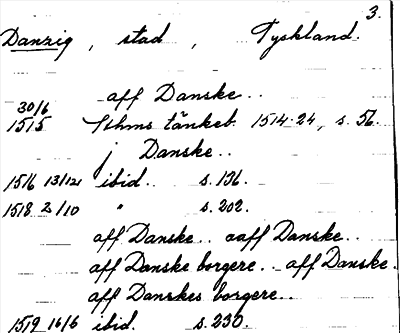 3.
Danzig, stad, Tyskland.
aff Danske..
30/6
1515 Sthms tänkeb. 1514-24, s. 56.
j Danske..
1516 13/12 ibid. s. 196.
1518 2/10 " s. 202.
aff Danske.. aaff Danske..
aff Danske borgere.. aff Danske.
aff Danskes borgere..
1519 16/6 ibid. s. 230.